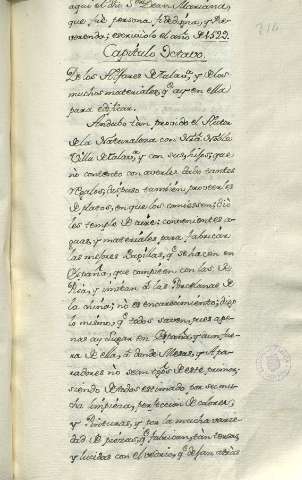 aqui el dia S.^tos Dean Mariana,
que fue persona fidedigna, y Re-
verenda; escriviolo el año de 1522.
Capítulo Octavo.
De los Alfares de Talav.^a, y de los
muchos materiales, q.^e ay en ella
para edificar.
Anduvo tan provido el Autor
de la Naturaleza con esta Noble
Villa de Talav.^a, y con sus hijos; que
no contento con averles dado tantos
regalos, dispuso también proverles
de platos, en que los comiessen; dio
les temple de aire; convenientes a-
guas, y materiales para fabricar
las mejores Bagillas, q.^e se hacen en
España, que compiten con las de
Pisa, y imitan a las Porcelanas de
la China; no es encarecimiento; digo
lo mismo, q.^e todos saven, pues ape-
nas ay lugar en España, y aun fue-
ra de ella, a donde Mesas, y Apa-
radores no sean de este, primor,
siendo de todos estimado por su mu-
cha limpieza, perfeccion de colores,
y Pinturas, y por la mucha varie-
dad de piezas, q.^e fabrican, tan tersas,
y lucidas con el vedrio, q.^e dejan atras